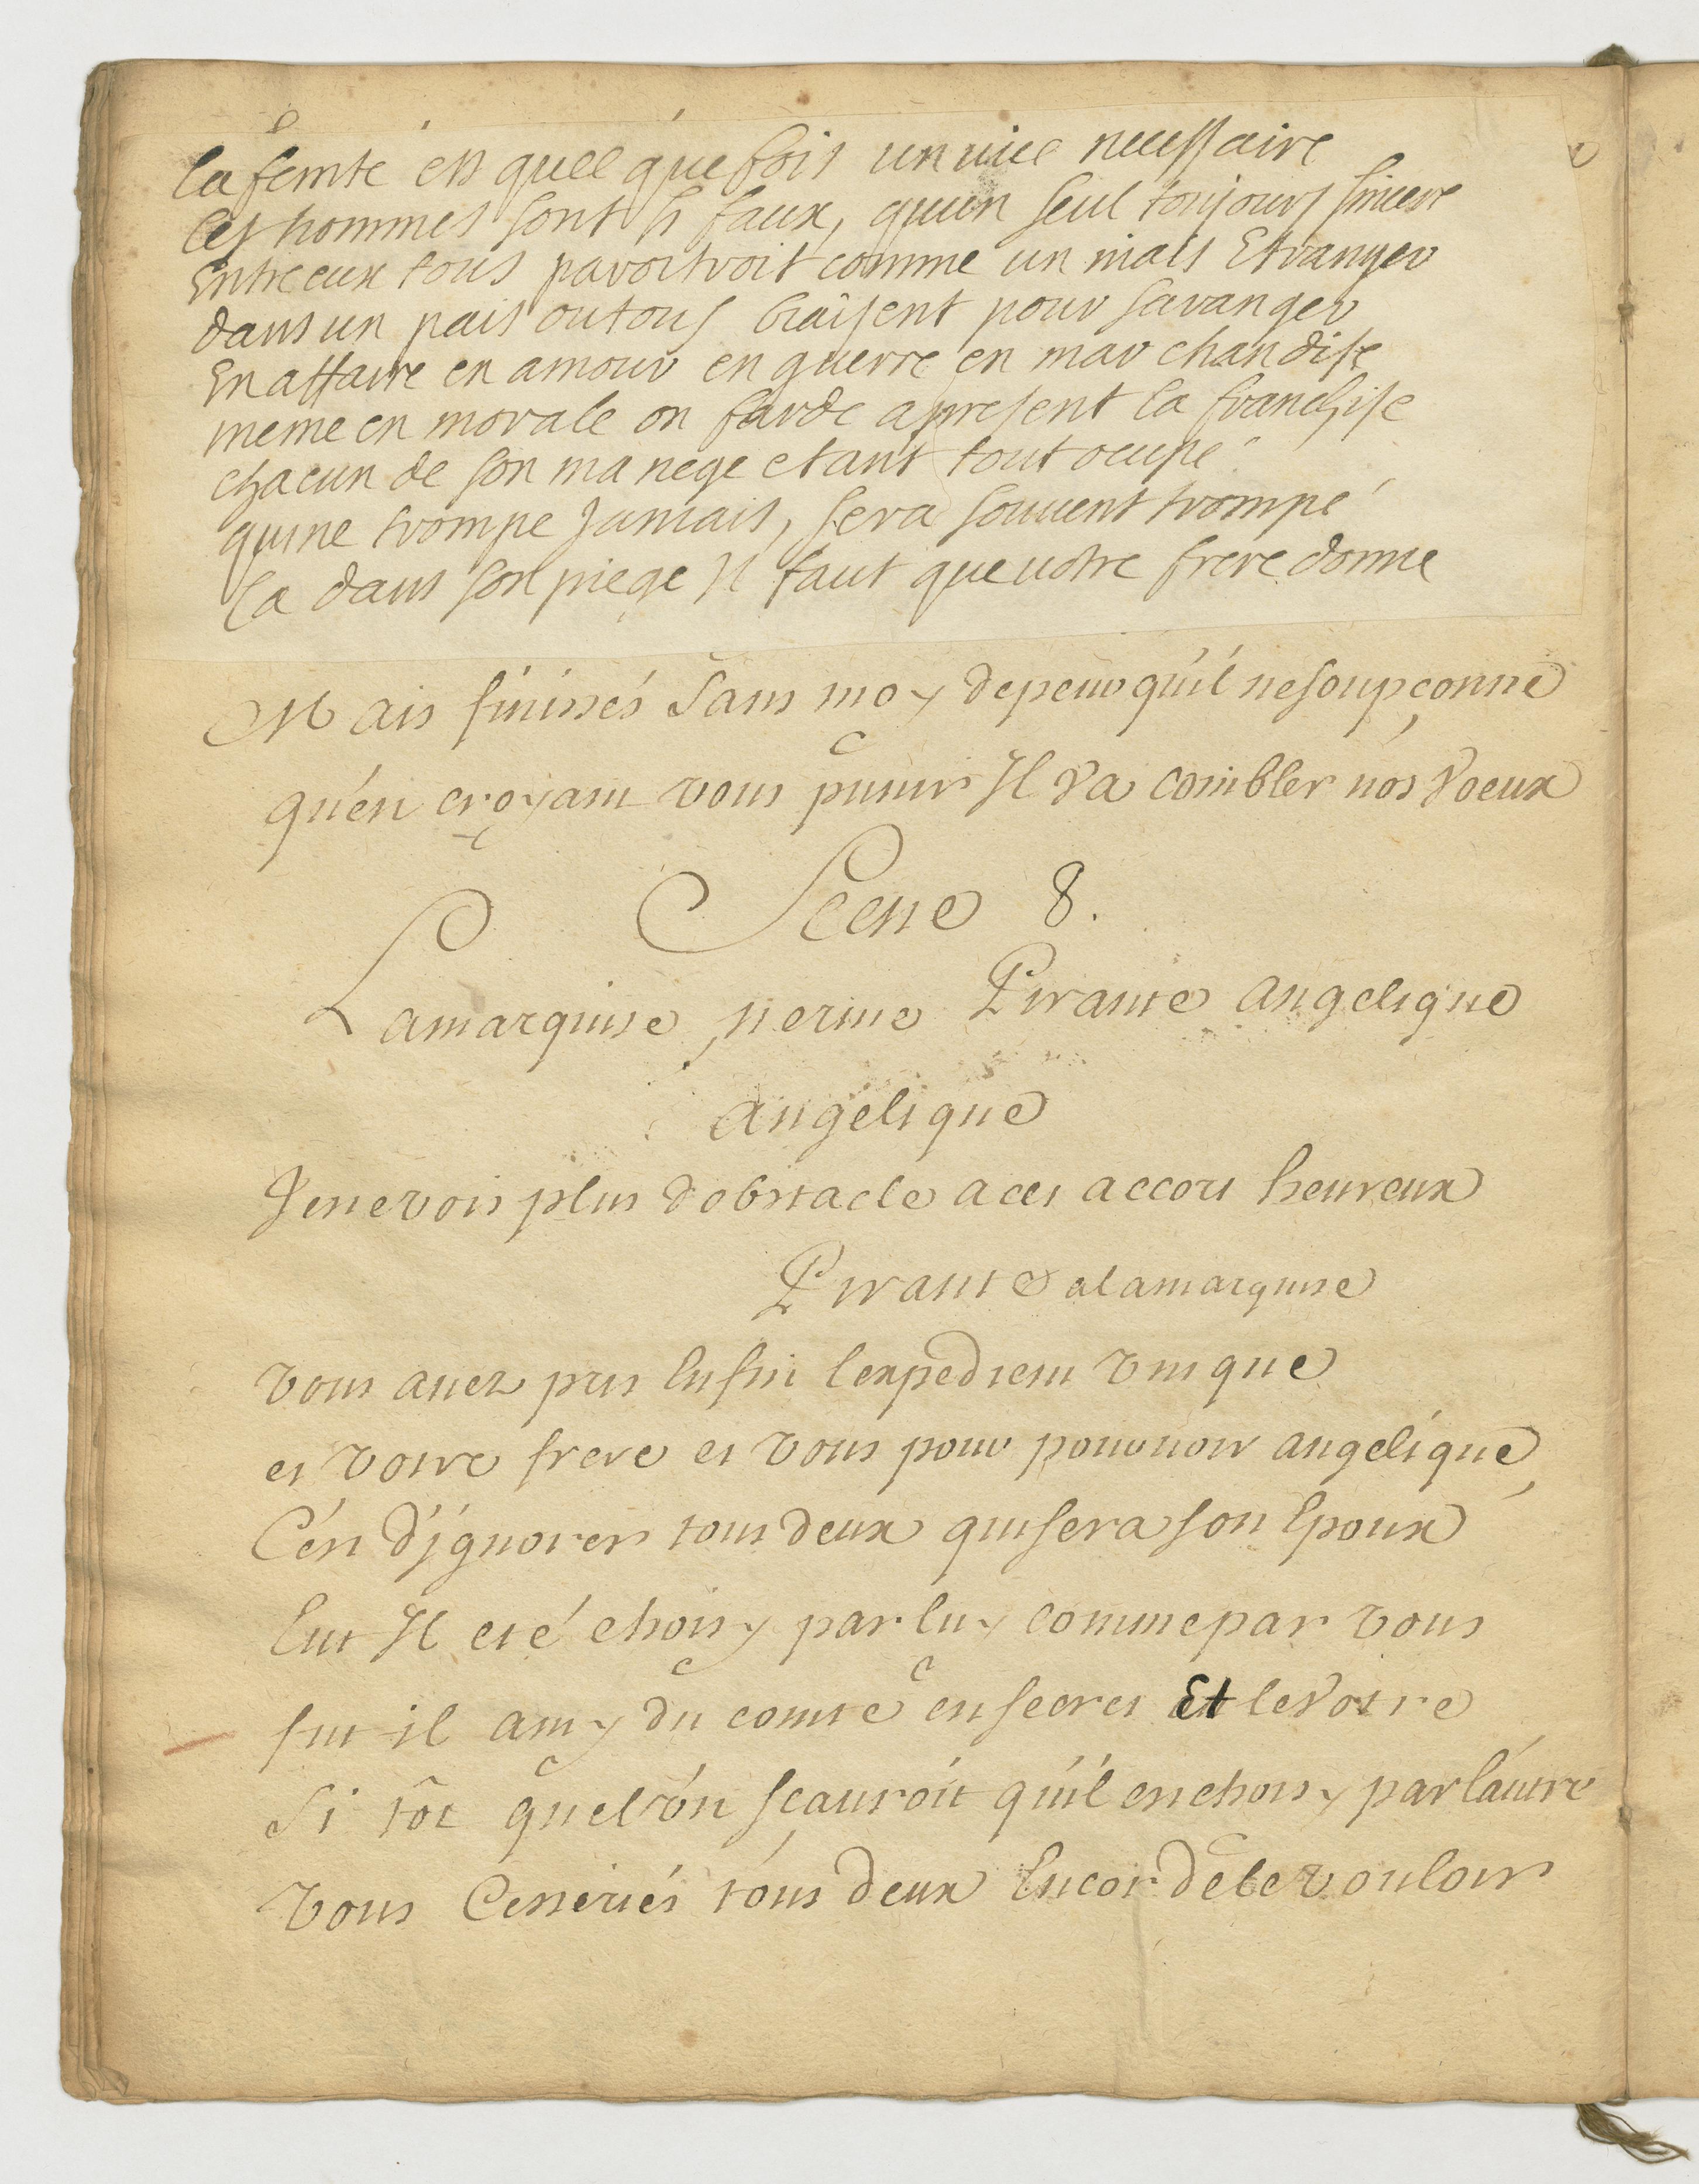 la feinte est quelquefois un vice necessaire
les hommes sont si faux, quun seul toujours sincere
Entre eux tous paroitroit comme un niais Etranger
dans un païs ou tous biaisent pour saranger
En affaire en amour en guerre en marchandise
meme en morale on farde apresent la franchise
chacun de son manege etant tout ocupé
qui ne trompe jamais, sera souvent trompé
la dans son piege Il faut que votre frere donne
Mais finissés sans moy de peur qu'il ne soupçonne
qu'en croyant vous punir Il va combler nos voeux
Scene 8.
La marquise, nerine Pirante angelique
angelique
Je ne vois plus d'obstacle a ces accors heureux
Pirante a la marquise
vous avez pris Enfin lexpedient unique
et votre frere et vous pour pourvoir angelique,
C'est d'jgnorer tous deux qui sera son Epoux
Eut Il eté choisy par luy comme par vous
fut-il amy du comte en secret Et le votre
si tôt que l'on scauroit qu'il est choisy par l'autre
vous Cesseriés tous deux Encor de le vouloir